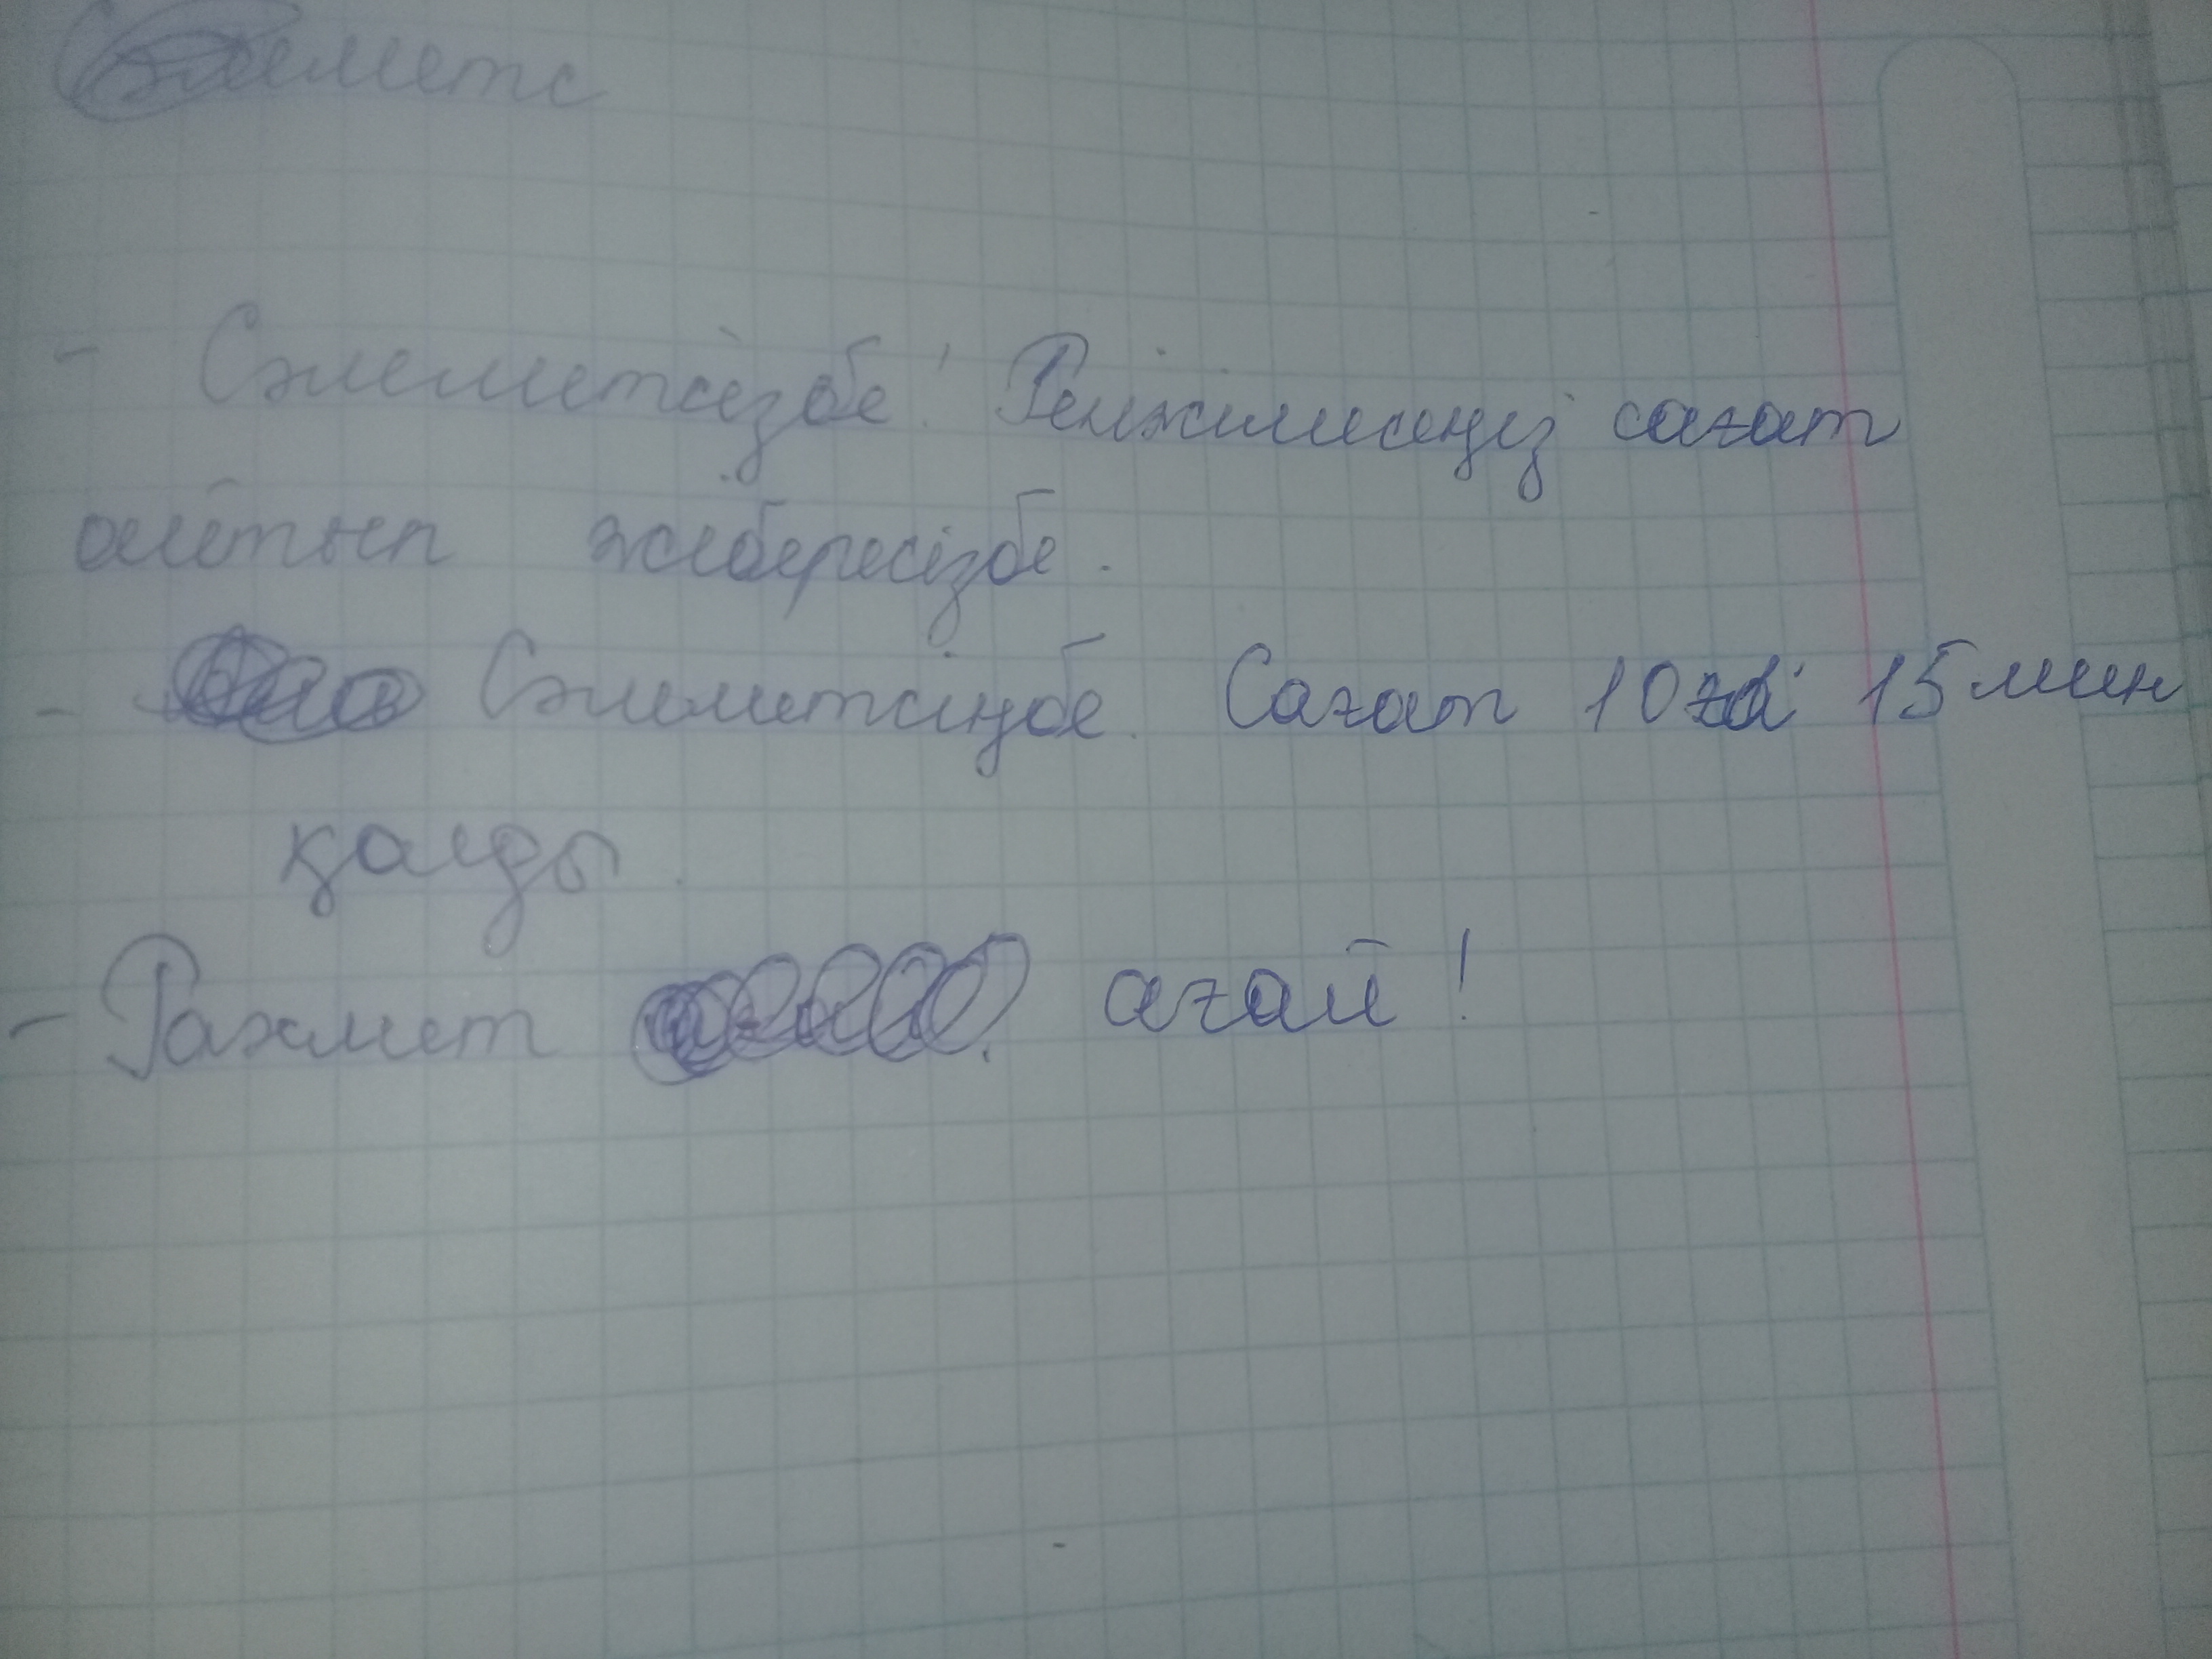 - Сәлеметсізбе! Ренжімесеңіз сағат
айтып жібересізбе.
- Сәлеметсіңбе. Сағат 10ға 15 мин
қалды.
- Рахмет ағай!